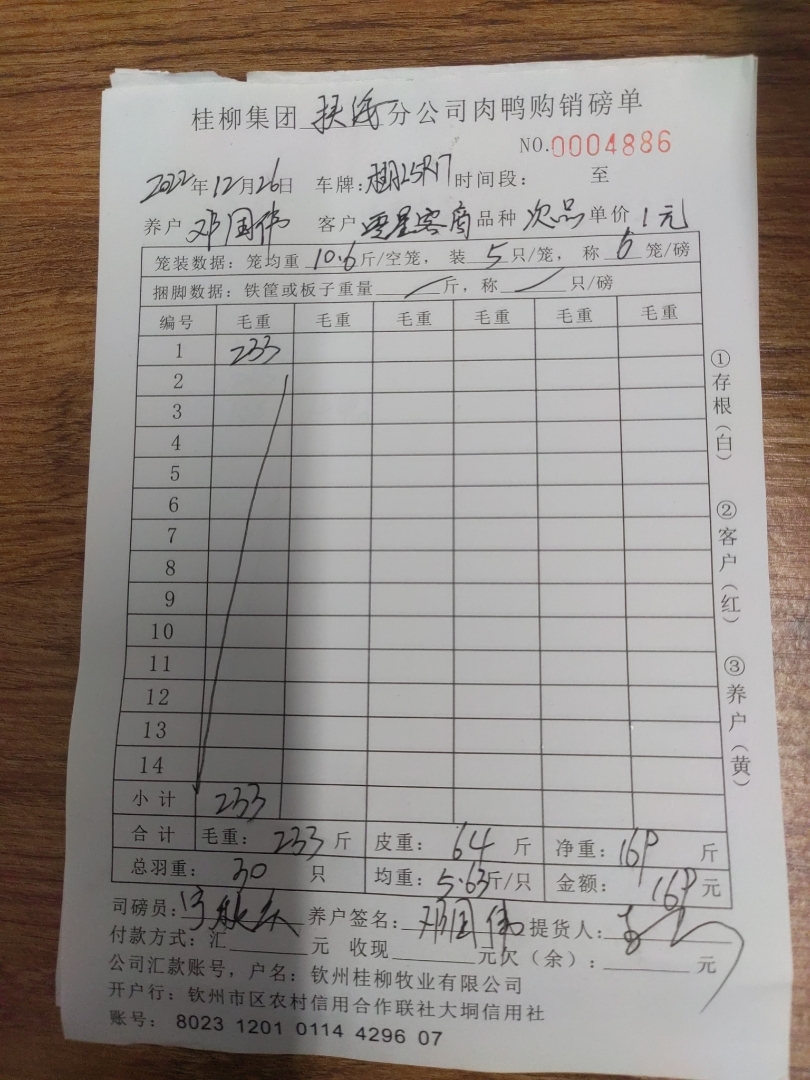 桂柳集团 扶绥 分公司肉鸭购销磅单
NO.0004886
2022年12月26日 车牌: 时间段: 至
养户 邓国伟 客户 零星客商 品种 次品 单价 1元
笼装数据：笼均重 10.6 斤/空笼， 装 5 只/笼， 称 6 笼/磅
捆脚数据：铁筐或板子重量 斤，称 只/磅
编号 毛重 毛重 毛重 毛重 毛重 毛重
1 233
2
3
4
5
6
7
8
9
10
11
12
13
14
小计 233
合计 毛重： 233 斤 皮重： 64 斤 净重：169 斤
总羽重： 30 只 均重：5.63斤/只 金额： 169元
司磅员: 养户签名：邓国伟 提货人：
付款方式：汇 元 收现 元欠（余）： 元
公司汇款账号，户名：钦州桂柳牧业有限公司
开户行：钦州市区农村信用合作联社大垌信用社
账号： 8023 1201 0114 4296 07
①存根（白） ②客户（红） ③养户（黄）